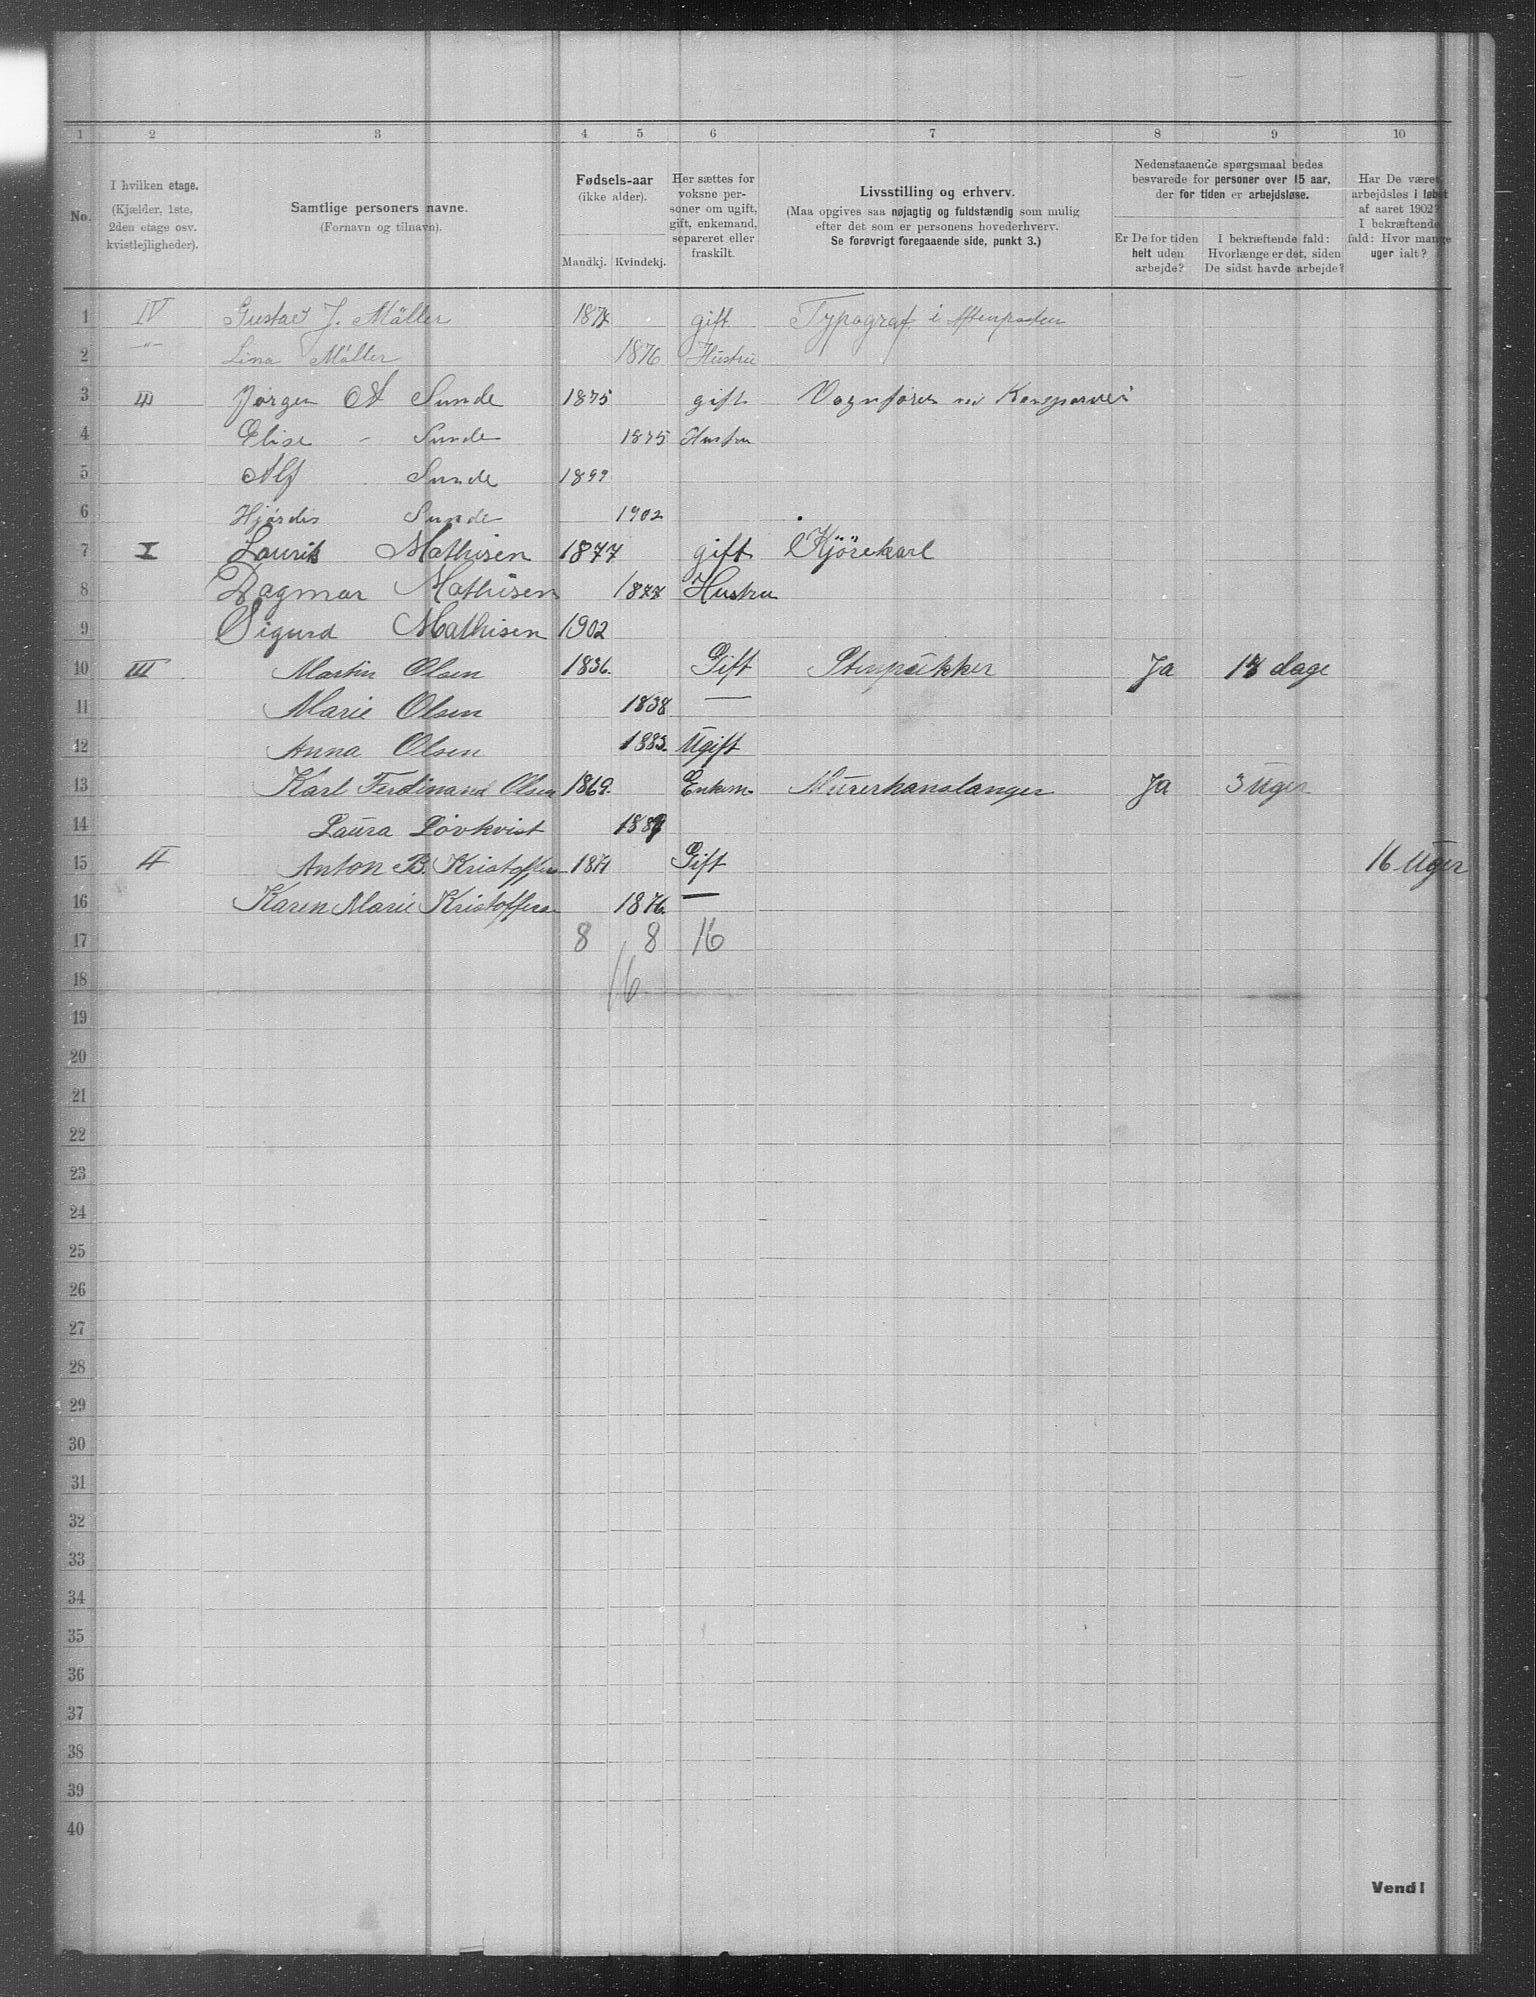 1 2 3 4 5 6 7 8 9 10
No.
I hvilken etage.
(Kjælder, 1ste,
2den etage osv.
kvistlejligheder).
Samtlige personers navne.
(Fornavn og tilnavn).
Fødsels-aar
(ikke alder).
Mandkj. Kvindekj.
Her sættes for
voksne per-
soner om ugift,
gift, enkemand,
separeret eller
fraskilt.
Livsstilling og erhverv.
(Maa opgives saa nøjagtig og fuldstændig som mulig
efter det som er personens hovederhverv.
Se forøvrigt foregaaende side, punkt 3.)
Nedenstaaende spørgsmaal bedes
besvarede for personer over 15 aar,
der for tiden er arbejdsløse.
Er De for tiden
helt uden
arbejde?
I bekræftende fald:
Hvorlænge er det, siden
De sidst havde arbejde?
Har De været
arbejdsløs i løbet
af aaret 1902?
I bekræftende
fald: Hvor mange
uger ialt?
1 IV Gustav J. Mäller gift Typograf i Aftenposten
2 -"- Lina Mäller 1876 Hustru
3 III Jørgen A Sunde 1875 gift Vognfører
4 Elise - Sunde 1875 Hustru
5 Alf Sunde 1899
6 Hjørdis Sunde 1902
7 I Laurits Mathisen 1877 gift Kjörekarl
8 Dagmar Mathisen 1877 Hustru
9 Sigurd Mathisen 1902
10 III Martin Olsen 1836. Gift Stenpikker Ja dage
11 Marie Olsen 1838 —
12 Anna Olsen 1883. Ugift
13 Karl Ferdinand Olsen 1869. Enkem. Murerhanslanger Ja 3 Uger
14 Laura Lövkvist
15 II Anton B. Kristoffersen 1871 Gift 16 Uger
16 Karen Marie Kristoffersen 1876. —
17 8 8 16
18 16
19
20
21
22
23
24
25
26
27
28
29
30
31
32
33
34
35
36
37
38
39
40
Vend!